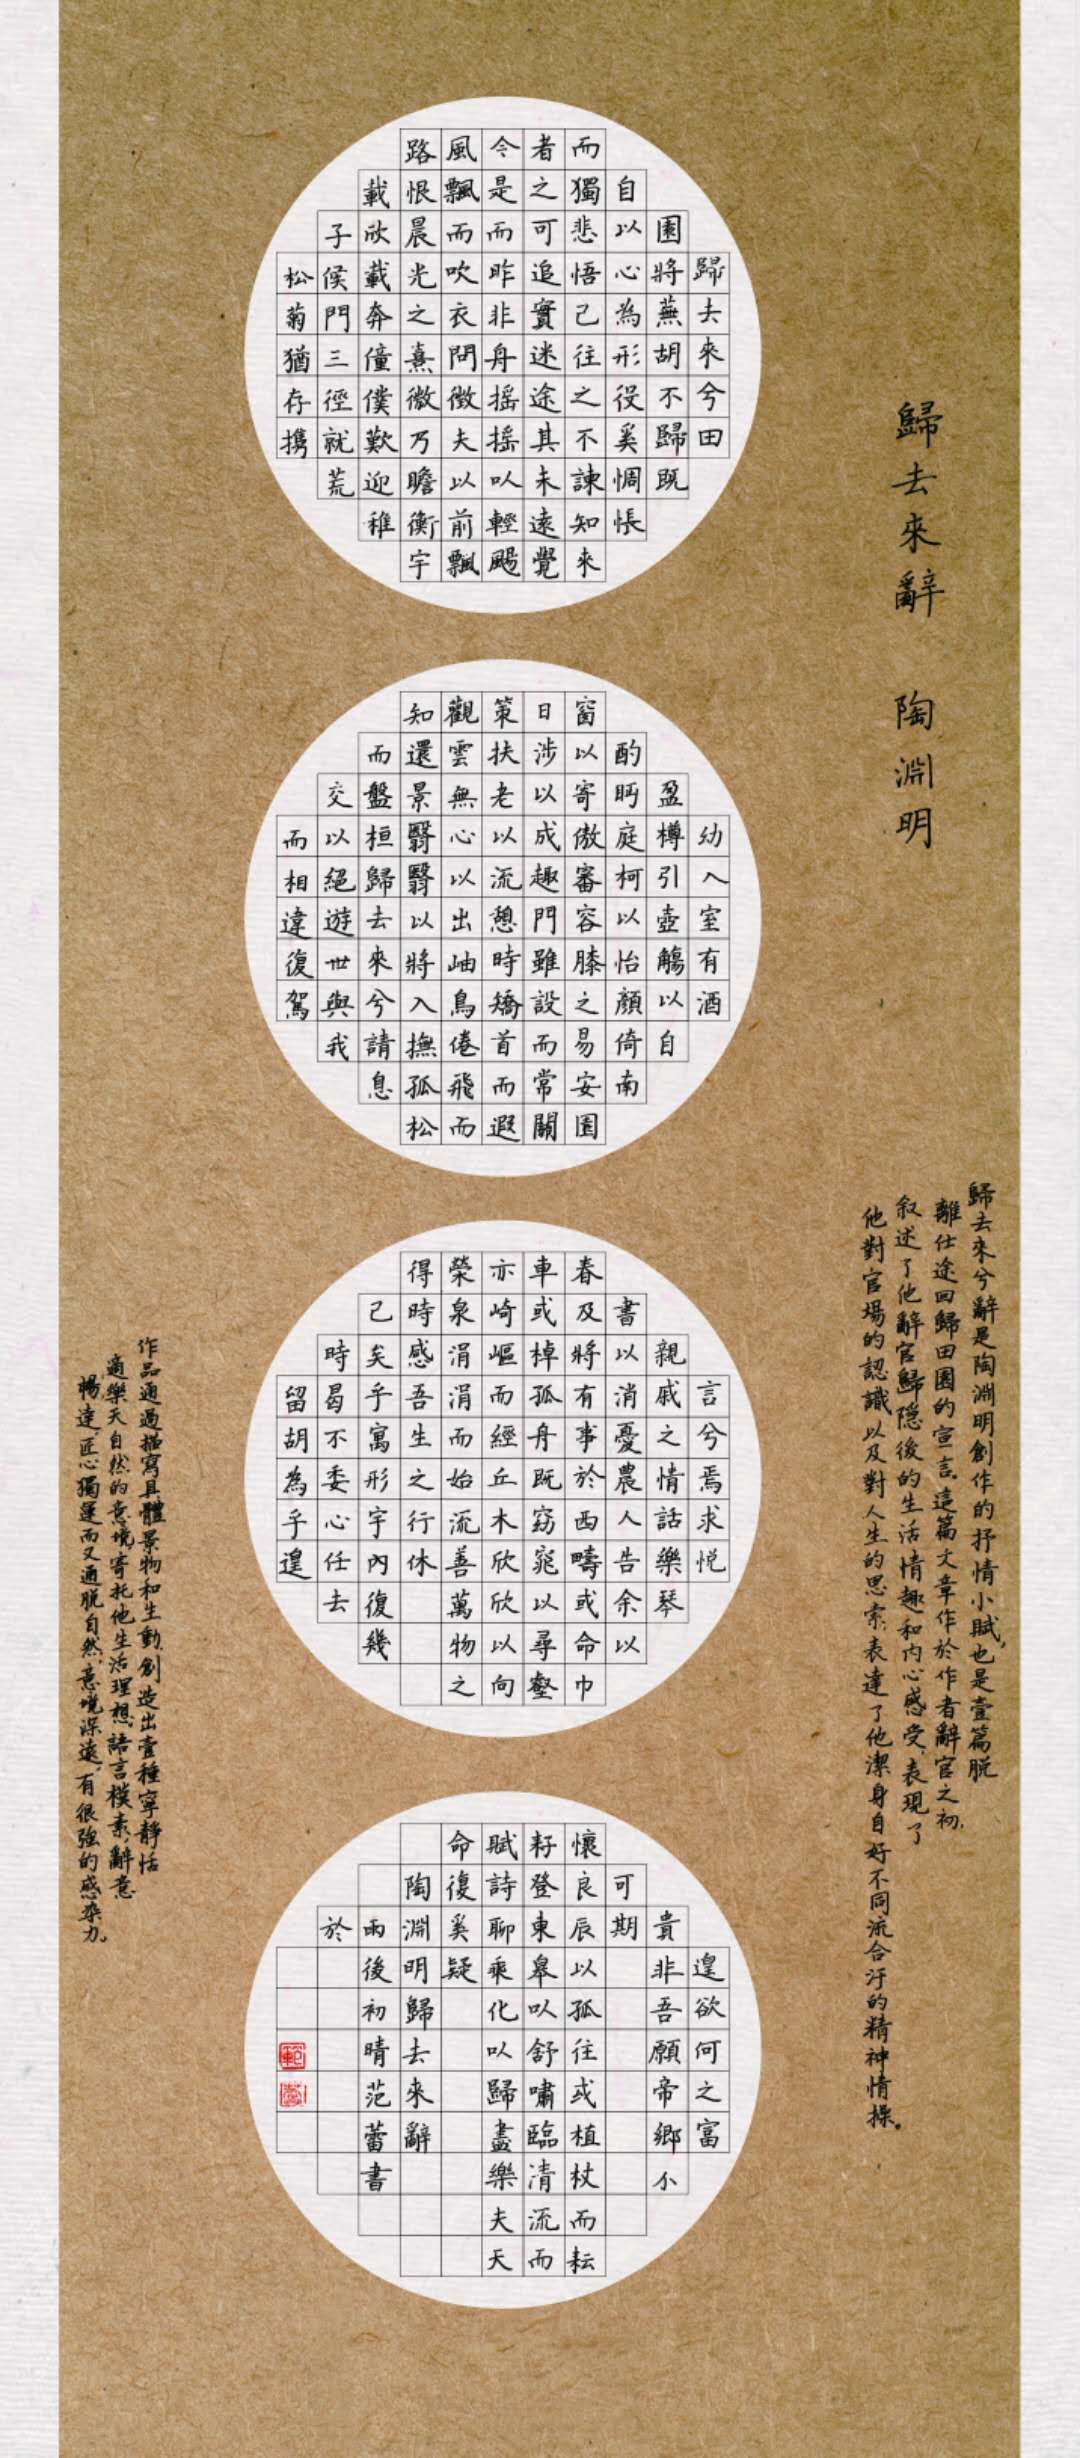 歸去來辭　陶淵明
歸去來兮田
園將蕪胡不歸既
自以心為形役奚惆悵
而獨悲悟已往之不諫知來
者之可追實迷途其未遠覺
今是而昨非舟摇摇以輕颺
風飄而吹衣問徵夫以前飄
路恨晨光之熹微乃瞻衡宇
載欣載奔僮僕歎迎稚
子候門三徑就荒
松菊猶存携
幼入室有酒
盈樽引壺觴以自
酌眄庭柯以怡顏倚南
窗以寄傲審容膝之易安園
日涉以成趣門雖設而常關
策扶老以流憩時矯首而遐
觀雲無心以出岫鳥倦飛而
知還景翳翳以將入撫孤松
而盤桓歸去來兮請息
交以絕遊世與我
而相違復駕
言兮焉求悅
親戚之情話樂琴
書以消憂農人告余以
春及將有事於西疇或命巾
車或棹孤舟既窈窕以尋壑
亦崎嶇而經丘木欣欣以向
榮泉涓涓而始流善萬物之
得時感吾生之行休
己矣乎寓形宇內復幾
時曷不委心任去
留胡為乎遑
遑欲何之富
貴非吾願帝鄉不
可期
懷良辰以孤往或植杖而耘
耔登東皋以舒嘯臨清流而
賦詩聊乘化以歸盡樂夫天
命復奚疑
陶淵明歸去來辭
雨後初晴范蕾書
於
歸去來兮辭是陶淵明創作的抒情小賦,也是壹篇脱
離仕途回歸田園的宣言。這篇文章作於作者辭官之初,
叙述了他辭官歸隱後的生活情趣和内心感受,表現了
他對官場的認識以及對人生的思索,表達了他潔身自好不同流合汙的精神情操。
作品通過描寫具體景物和生動,創造出壹種寧靜恬
適樂天自然的意境,寄托他生活理想。語言樸素,辭意
暢達,匠心獨運而又通脱自然,意境深遠,有很強的感染力。